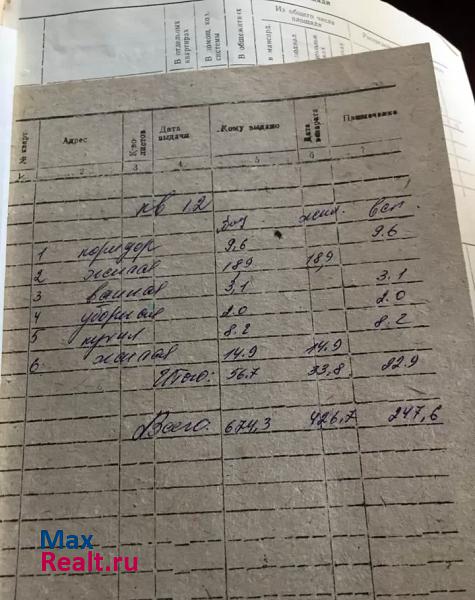 Из общего числа
площади
В отдельных квартирах
В помещ. кол. системы
В общежитиях
в мансард.
№ кварт.
Адрес
К-во листов
Дата выдачи
Кому выдано
Дата возврата
Примечание
2 3 4 5 6 7
кв 12
жил. всп.
1 коридор 9,6 9.6
2 жилая 18,9 18,9
3 ванная 3,1 3,1
4 уборная 2.0 2.0
5 кухня 8.2 8.2
6. жилая 14.9 14.9
Итого: 56.7 33,8 22.9
Всего: 674,3 426,7 247,6
Max
Realt.ru